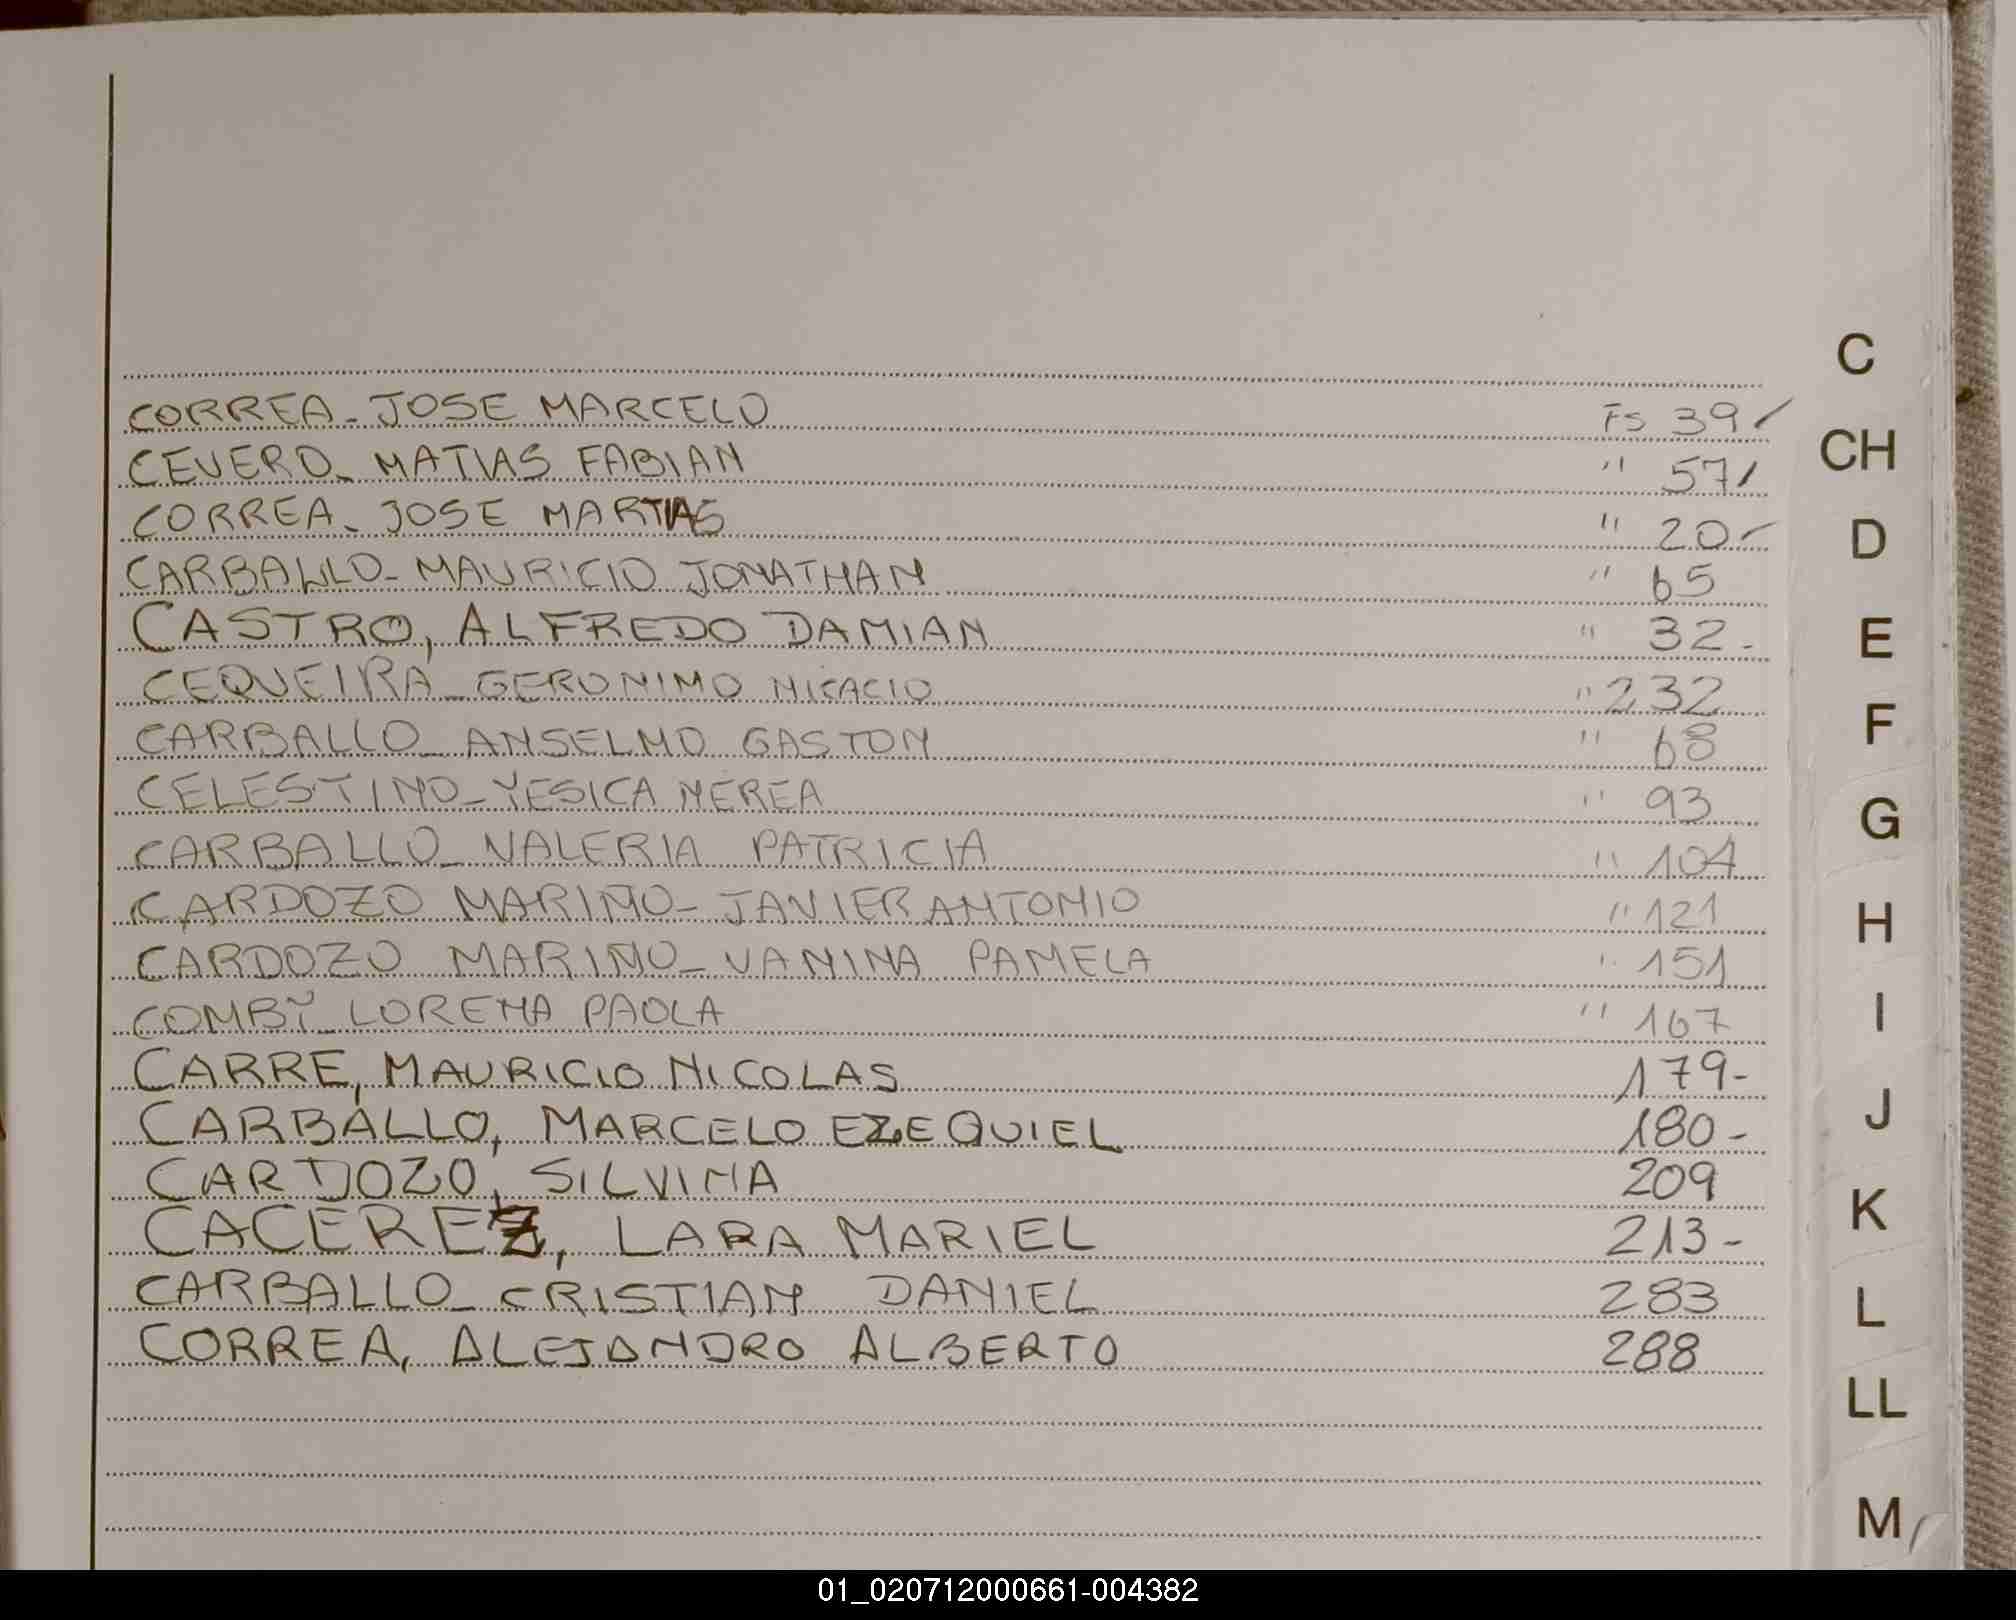 CORREA - JOSE MARCELO Fs 39/
CEVERO - MATIAS FABIAN " 57/
CORREA - JOSE MARTIAS " 20-
CARBALLO - MAURICIO JONATHAN " 65
CASTRO, ALFREDO DAMIAN " 32-
CEQUEIRA - GERONIMO NICACIO " 232
CARBALLO - ANSELMO GASTON " 68
CELESTINO - YESICA NEREA " 93
CARBALLO - VALERIA PATRICIA " 104
CARDOZO MARIÑO - JAVIER ANTONIO " 121
CARDOZO MARIÑO - VANINA PAMELA " 151
COMBY - LORENA PAOLA " 167
CARRE, MAURICIO NICOLAS 179-
CARBALLO, MARCELO EZEQUIEL 180-
CARDOZO, SILVINA 209
CACEREZ, LARA MARIEL 213-
CARBALLO - CRISTIAN DANIEL 283
CORREA, ALEJANDRO ALBERTO 288
C
CH
D
E
F
G
H
I
J
K
L
LL
M
01_020712000661-004382